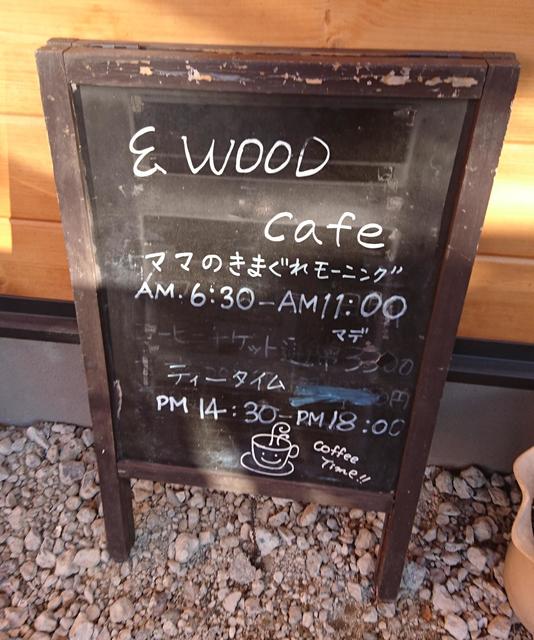 & WOOD
cafe
ママのきまぐれモーニング
AM. 6:30-AM11:00
マデ
コーヒーチケット 3300
ティータイム 円
PM 14:30-PM18:00
coffee
Time!!